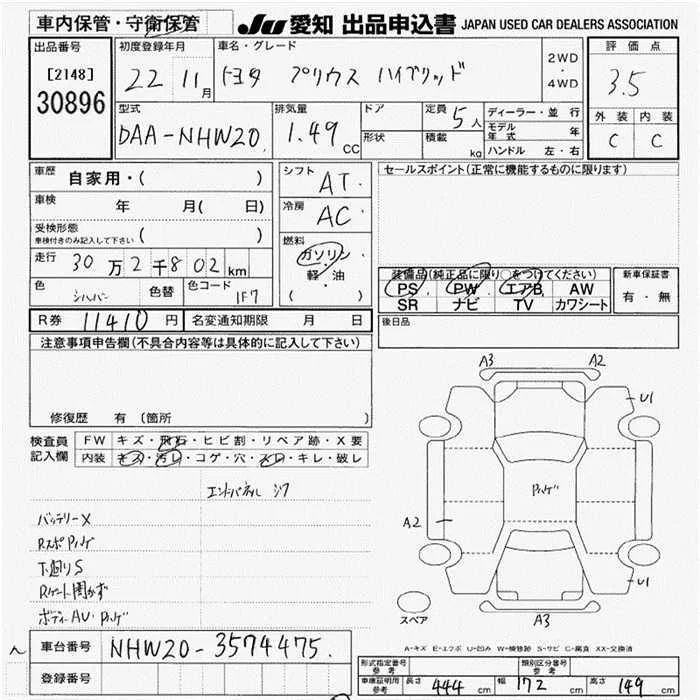 車内保管・守衛保管
JU 愛知 出品申込書 JAPAN USED CAR DEALERS ASSOCIATION
出品番号
[2148]
30896
初度登録年月
22 11月
車名・グレード
トヨタ プリウス ハイブリッド
2WD
・
4WD
評価点
3.5
外装 内装
C C
型式
DAA-NHW20
排気量
1.49 CC
ドア
形状
定員 5人
積載 kg
ディーラー・並行
モデル年式 年
ハンドル 左・右
車歴 自家用・( )
車検 年 月( 日)
受検形態
車検付きのみ記入して下さい ( )
走行 30万2千802km
色 シルバー 色替 色コード 1F7
R券 11410円 名変通知期限 月 日
シフト AT
冷房 AC
燃料
ガソリン
・
軽・油
( )
セールスポイント(正常に機能するものに限ります)
装備品(純正品に限り○をつけてください)
PS PW エアB AW
SR ナビ TV カワシート
新車保証書
有・無
後日品
注意事項申告欄(不具合内容等は具体的に記入して下さい)
修復歴 有 (箇所 )
検査員記入欄
FW キズ・飛石・ヒビ割・リペア跡・X要
内装 キズ・汚レ・コゲ・穴・スレ・キレ・破レ
エンドパネル
バッテリーX
下廻りS
Rゲート開かず
A3 A2
U1
A2
U1
A3
スペア
A-キズ E-エクボ U-凹み W-補修跡 S-サビ C-腐食 XX-交換済
車台番号 NHW20-3574475
登録番号
形式指定番号
参考
類別区分番号
参考
車庫証明用
参考
長さ 444cm 幅 172cm 高さ 149cm